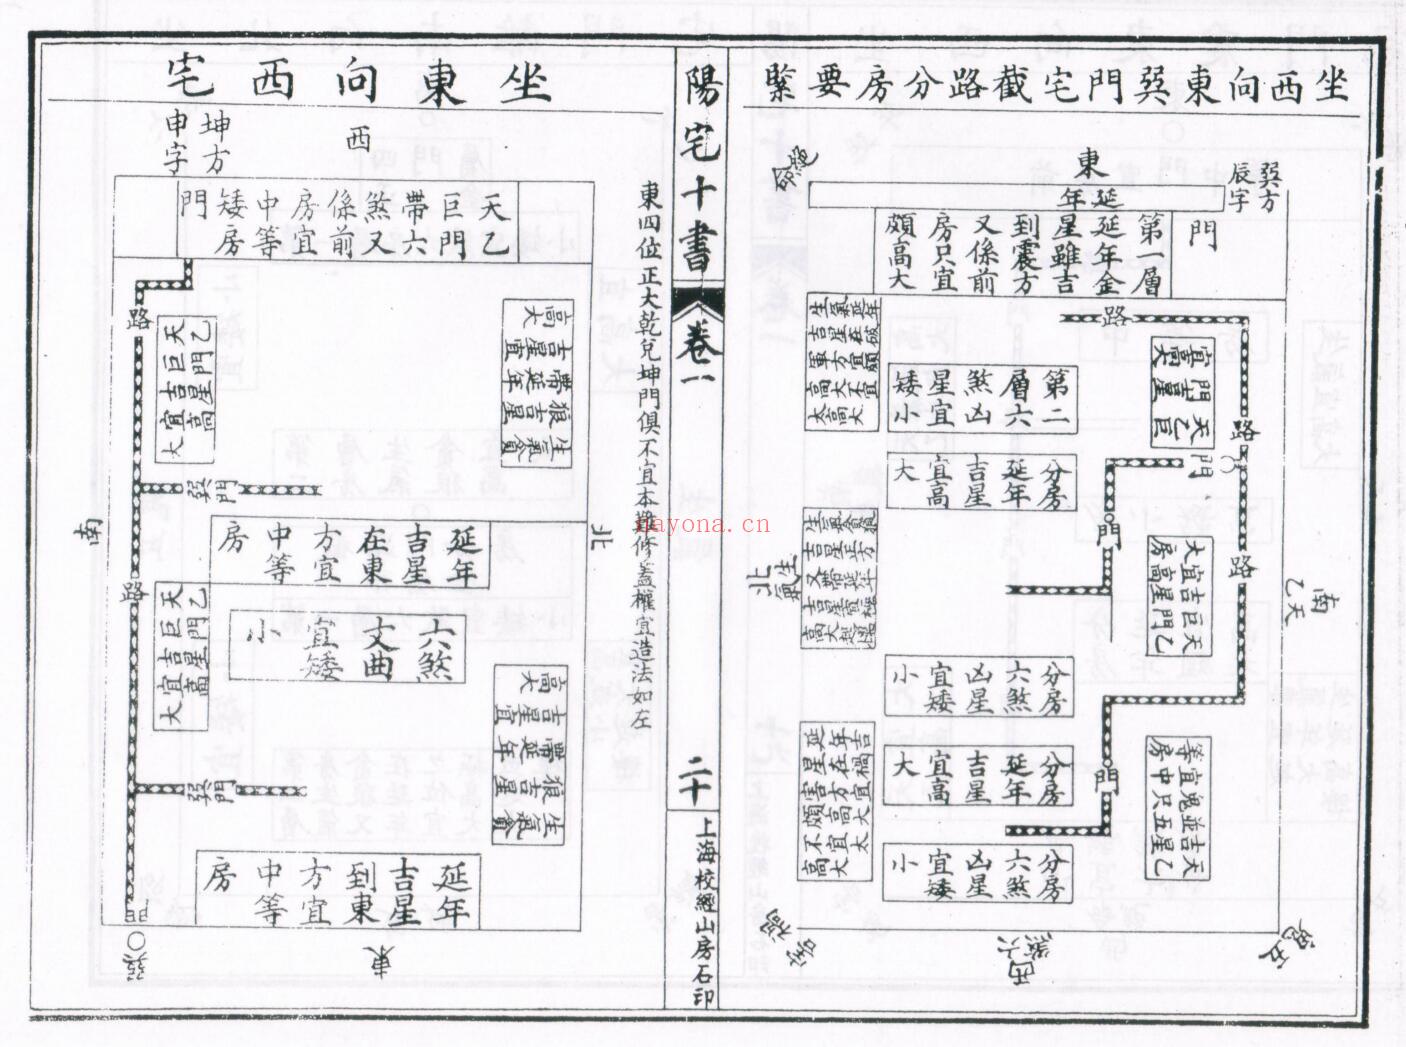 坐西向東巽門宅截路分房要緊
東
巽方
辰字
延年
門
第一層
延年金
星雖吉
到震方
又係前
房只宜
頗高大
路
第二
層六
煞凶
星宜
矮小
分房
延年
吉星
宜高
大
門
路
門
路
天乙
巨門
吉星
門
天乙
巨門
吉星
宜高
大房
分房
六煞
凶星
宜矮
小
分房
延年
吉星
宜高
大
門
分房
六煞
凶星
宜矮
小
天乙
吉星
並五
鬼只
宜中
等房
延年吉
星在禍
害方宜
頗高大
不宜太
高大
北
生氣
南
天乙
五鬼
西
六煞
禍害
陽宅十書
卷一
二十
上海校經山房石印
坐東向西宅
東四位正大乾兌坤門俱不宜本攤修蓋權宜造法如左
西
坤方
申字
門
天乙
巨門
帶六
煞又
係前
房宜
中等
矮房
路
天乙
巨門
吉星
宜高
大
生氣貪
狼吉星
帶延年
吉星宜
高大
巽門
南
北
延年
吉星
在東
方宜
中等
房
路
六煞
文曲
宜矮
小
天乙
巨門
吉星
宜高
大
生氣貪
狼吉星
帶延年
吉星宜
高大
巽門
延年
吉星
到東
方宜
中等
房
門
巽
東
nayona.cn